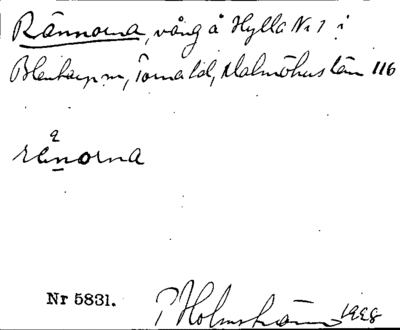 Rännorna, vång å Hylla Nr 7 i
Blentarp sn, Torna hd, Malmöhus län 116
a
ränorna
Nr 5831.
P Holmström 1928